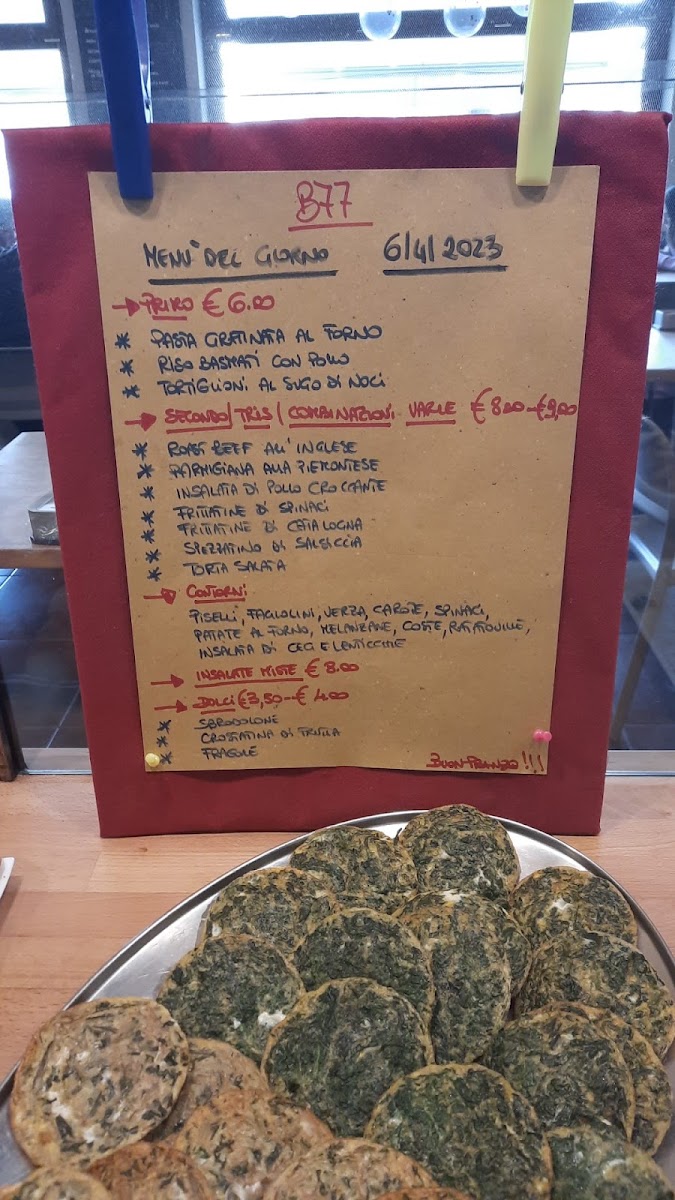 B77
MENU' DEL GIORNO 6/4/2023
PRIMO € 6.00
PASTA GRATINATA AL FORNO
RISO BASMATI CON POLLO
TORTIGLIONI AL SUGO DI NOCI
SECONDO/TRIS/COMBINAZIONI VARIE €8.00-€9,00
ROAST BEEF ALL'INGLESE
PARMIGIANA ALLA PIEMONTESE
INSALATA DI POLLO CROCCANTE
FRITTATINE DI SPINACI
FRITTATINE DI CATALOGNA
SPEZZATINO DI SALSICCIA
TORTA SALATA
CONTORNI
PISELLI, FAGIOLINI, VERZA, CAROTE, SPINACI,
PATATE AL FORNO, MELANZANE, COSTE, RATATOUILLE,
INSALATA DI CECI E LENTICCHIE
INSALATE MISTE € 8.00
DOLCI €3,50-€ 4.00
SBRODOLONE
CROSTATINA DI FRUTTA
FRAGOLE
BUON PRANZO!!!